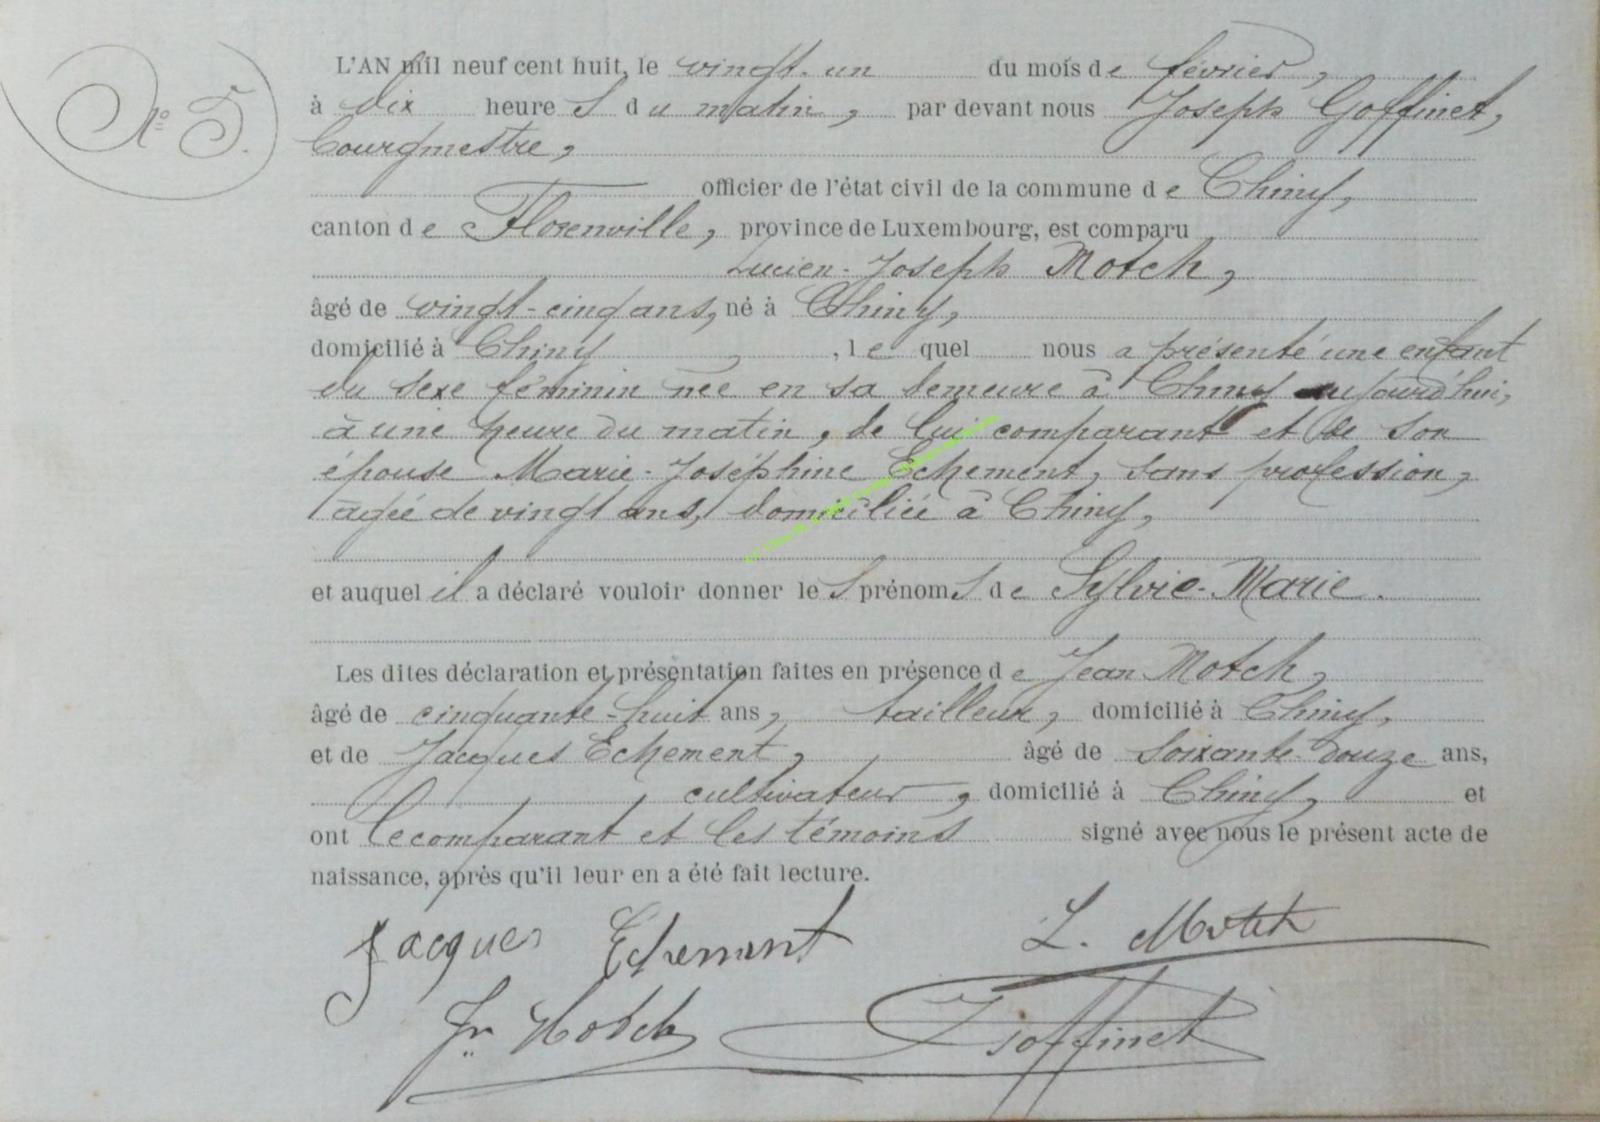 N° 5.
L'AN mil neuf cent huit, le vingt-un du mois de février,
à dix heures du matin, par devant nous Joseph Goffinet,
bourgmestre,
officier de l'état civil de la commune de Chiny,
canton de Florenville, province de Luxembourg, est comparu
Lucien-Joseph Motch,
âgé de vingt-cinq ans, né à Chiny,
domicilié à Chiny, lequel nous a présenté une enfant
du sexe féminin née en sa demeure à Chiny aujourd'hui,
à une heure du matin, de lui comparant et de son
épouse Marie-Joséphine Echement, sans profession,
âgée de vingt ans, domiciliée à Chiny,
et auquel il a déclaré vouloir donner les prénoms de Sylvie-Marie.
Les dites déclaration et présentation faites en présence de Jean Motch,
âgé de cinquante-huit ans, tailleur, domicilié à Chiny,
et de Jacques Echement, âgé de soixante-douze ans,
cultivateur, domicilié à Chiny, et
ont le comparant et les témoins signé avec nous le présent acte de
naissance, après qu'il leur en a été fait lecture.
Jacques Echement L. Motch
Jn Motch J Goffinet